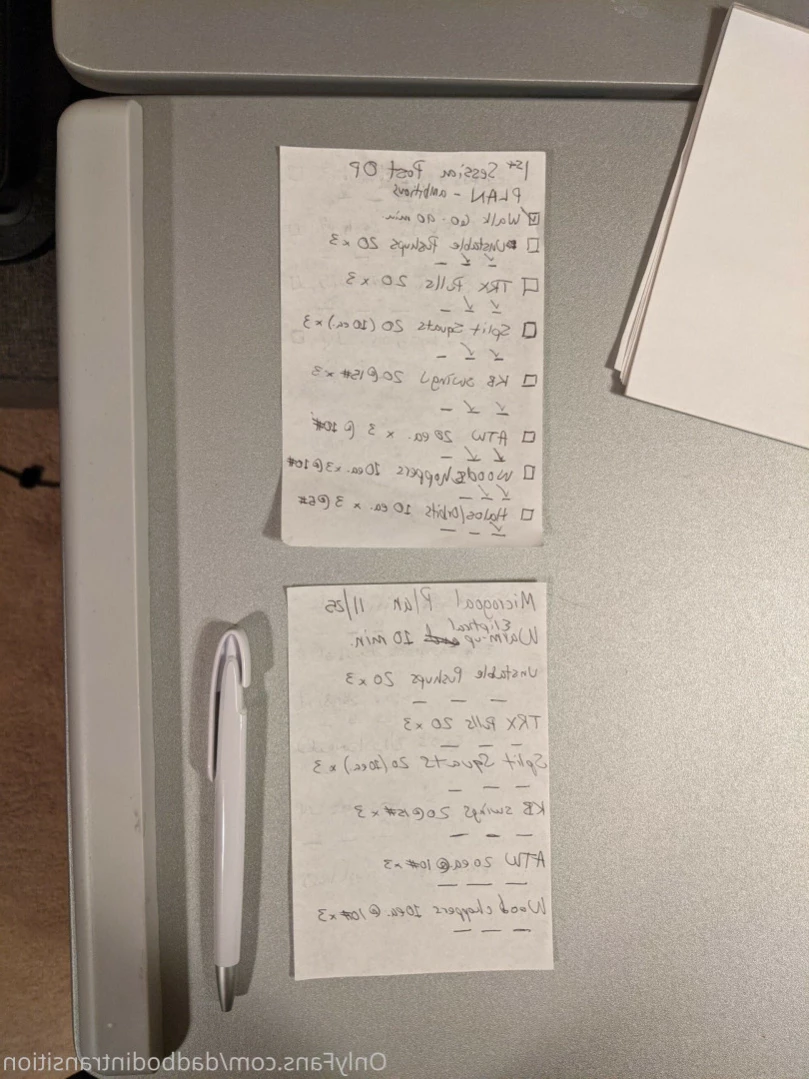 1st Session Post OP
PLAN - ambitious
Walk 60-90 min
Unstable Pushups 20 x 3
TRX Pulls 20 x 3
Split Squats 20 (10 ea.) x 3
KB swings 20 @ 15# x 3
ATW 20 ea. x 3 @ 10#
Woodchoppers 10 ea. x 3 @ 10#
Halos/Orbits 10 ea. x 3 @ 5#
Microgoal Plan 11/25
Eliptical
Warm-up 10 min.
Unstable Pushups 20 x 3
TRX Pulls 20 x 3
Split Squats 20 (10 ea.) x 3
KB swings 20 @ 15# x 3
ATW 20 ea @ 10# x 3
Wood choppers 10 ea. @ 10# x 3
OnlyFans.com/dadbodintransition